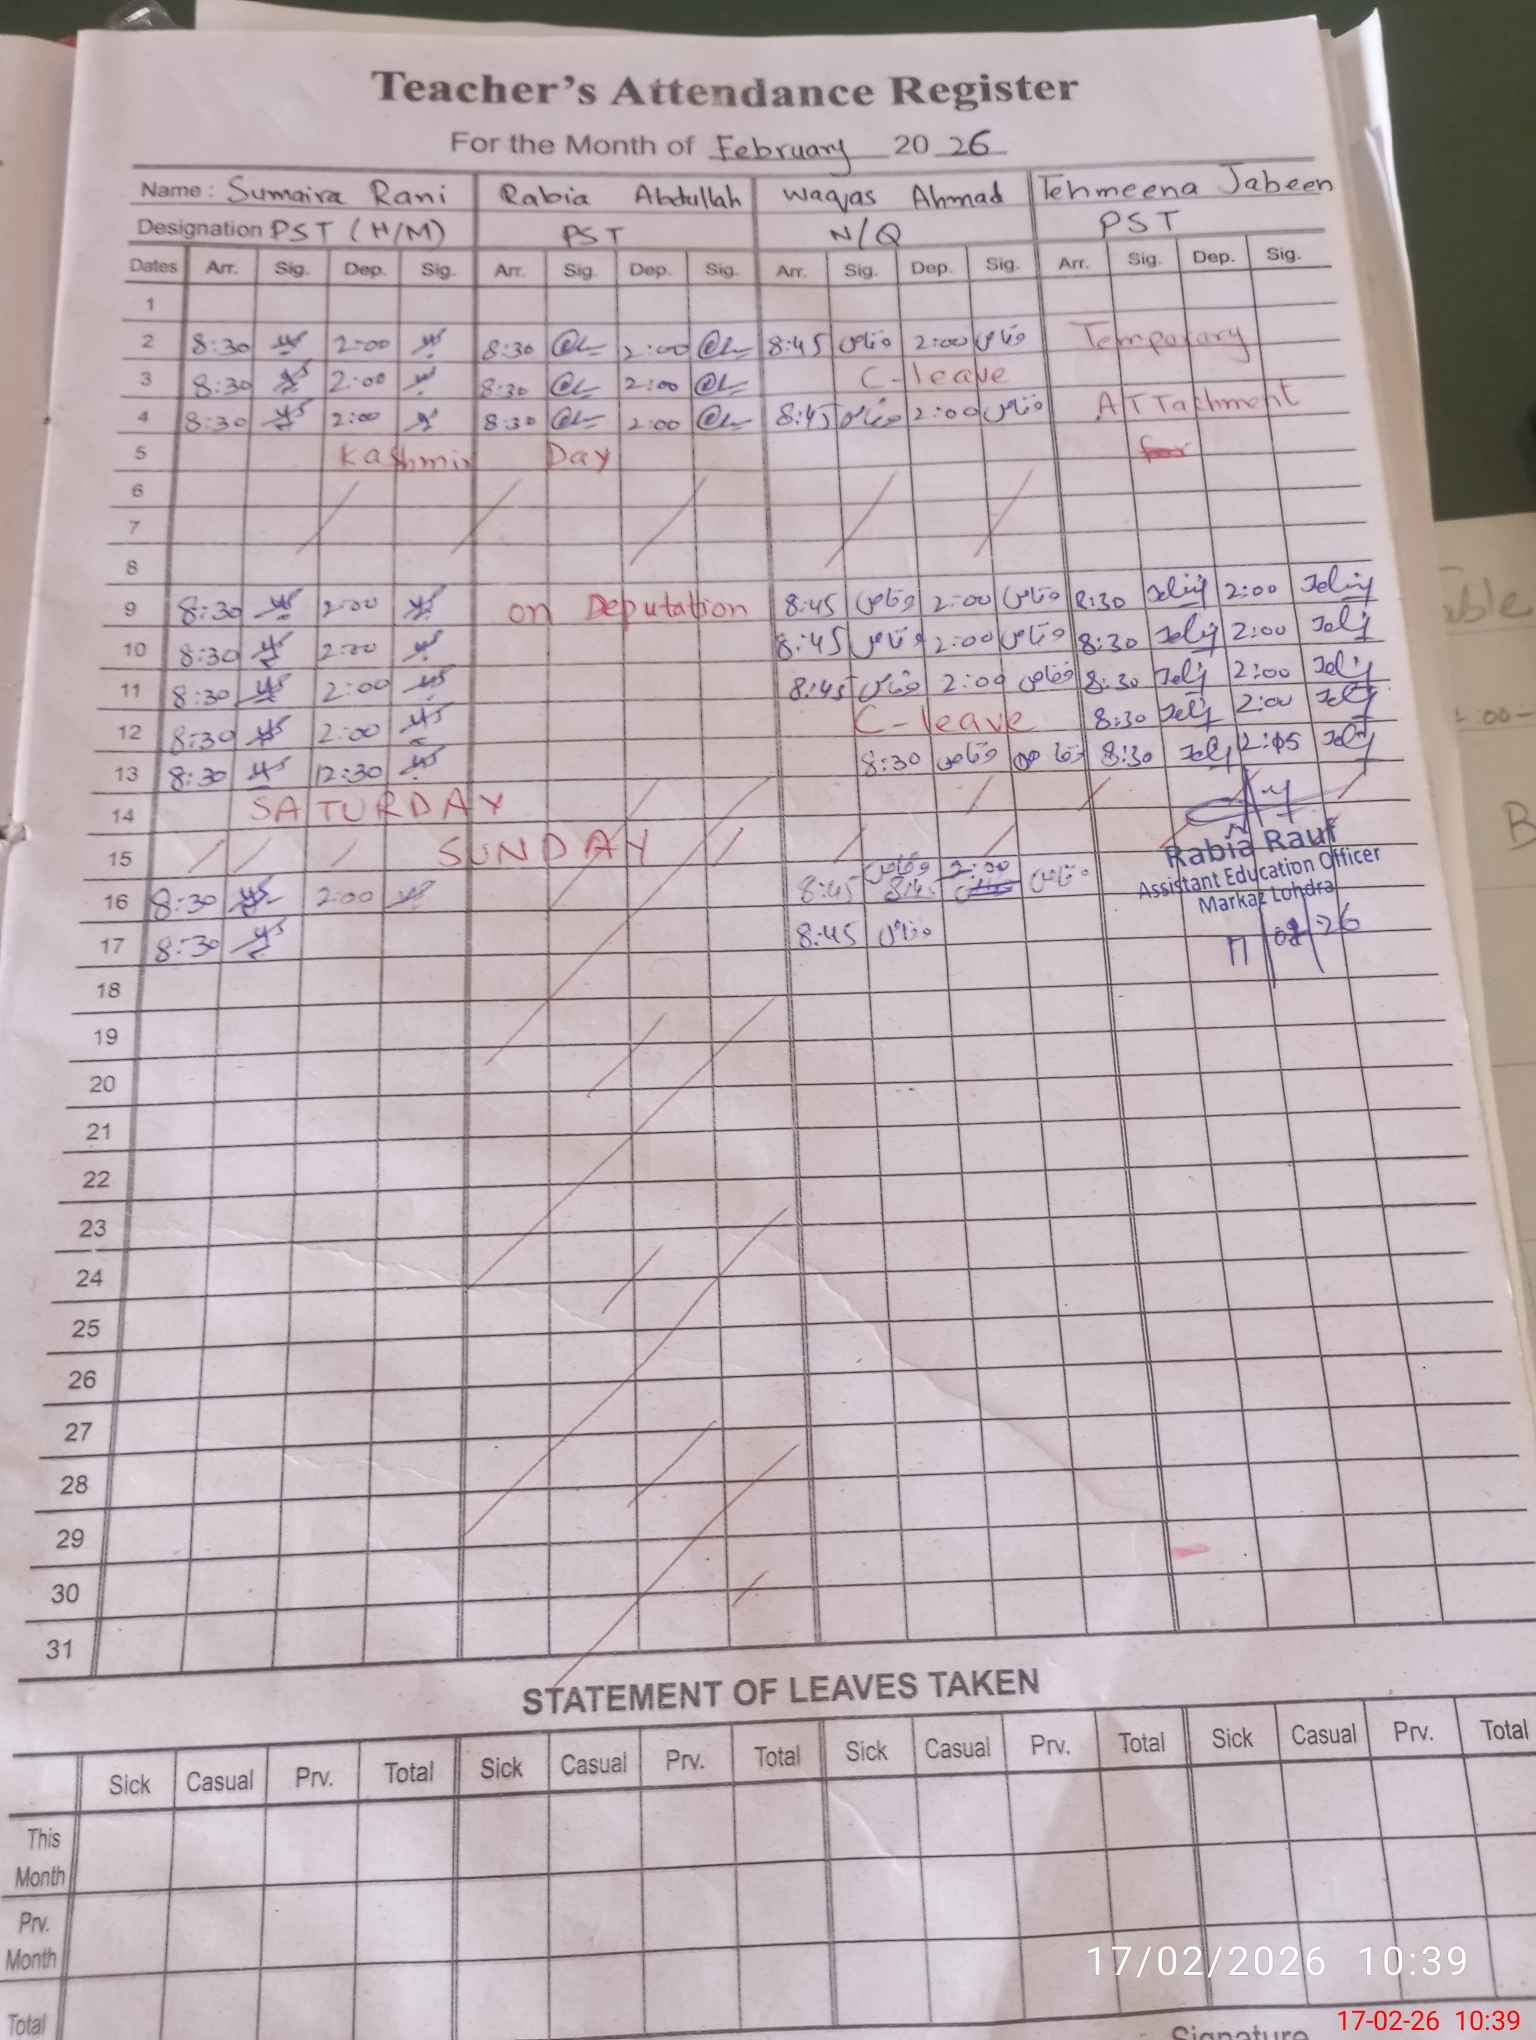 Teacher's Attendance Register
For the Month of February 20 26
Name : Sumaira Rani Rabia Abdullah Waqas Ahmad Tehmeena Jabeen
Designation PST (H/M) PST N/Q PST
Dates Arr. Sig. Dep. Sig. Arr. Sig. Dep. Sig. Arr. Sig. Dep. Sig. Arr. Sig. Dep. Sig.
1
2 8:30 2:00 8:30 2:00 8:45 وقاص 2:00 وقاص Temporary
3 8:30 2:00 8:30 2:00 C-leave
4 8:30 2:00 8:30 2:00 8:45 وقاص 2:00 وقاص ATTachment
5 Kashmir Day
6
7
8
9 8:30 2:00 on Deputation 8:45 وقاص 2:00 وقاص 8:30 2:00
10 8:30 2:00 8:45 وقاص 2:00 وقاص 8:30 2:00
11 8:30 2:00 8:45 وقاص 2:00 وقاص 8:30 2:00
12 8:30 2:00 C-leave 8:30 2:00
13 8:30 12:30 8:30 وقاص وقاص 8:30
14 SATURDAY
15 SUNDAY
Rabia Rauf
Assistant Education Officer
Markaz Lohdra
16 8:30 2:00 8:45 وقاص 8:45 2:00 وقاص
17 8:30 8:45 وقاص
18
19
20
21
22
23
24
25
26
27
28
29
30
31
STATEMENT OF LEAVES TAKEN
Sick Casual Prv. Total Sick Casual Prv. Total Sick Casual Prv. Total Sick Casual Prv. Total
This
Month
Prv.
Month
Total
Signature
17/02/2026 10:39
17-02-26 10:39